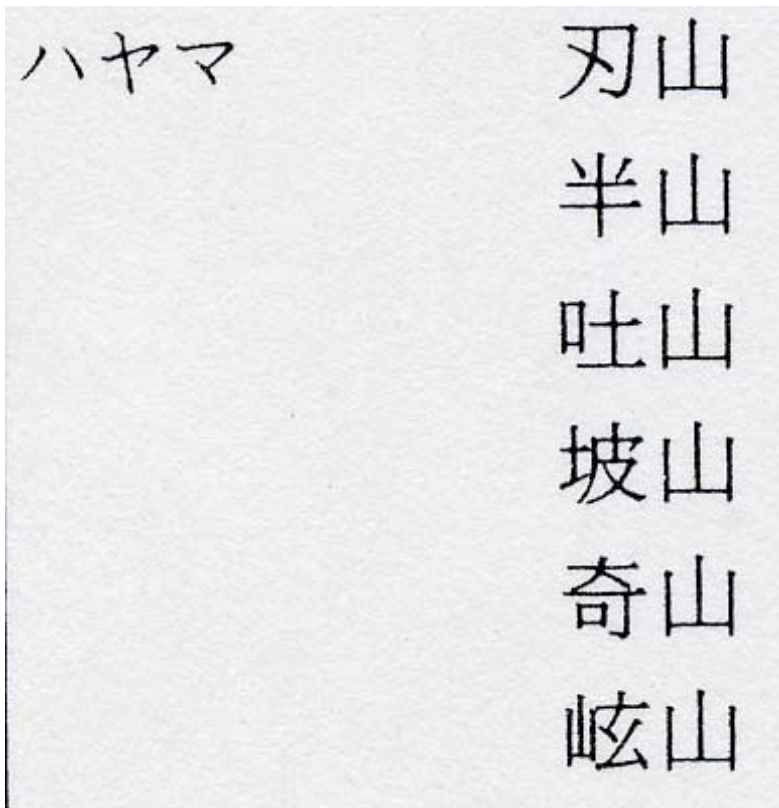 ハヤマ 刃山
半山
吐山
坡山
奇山
岐山